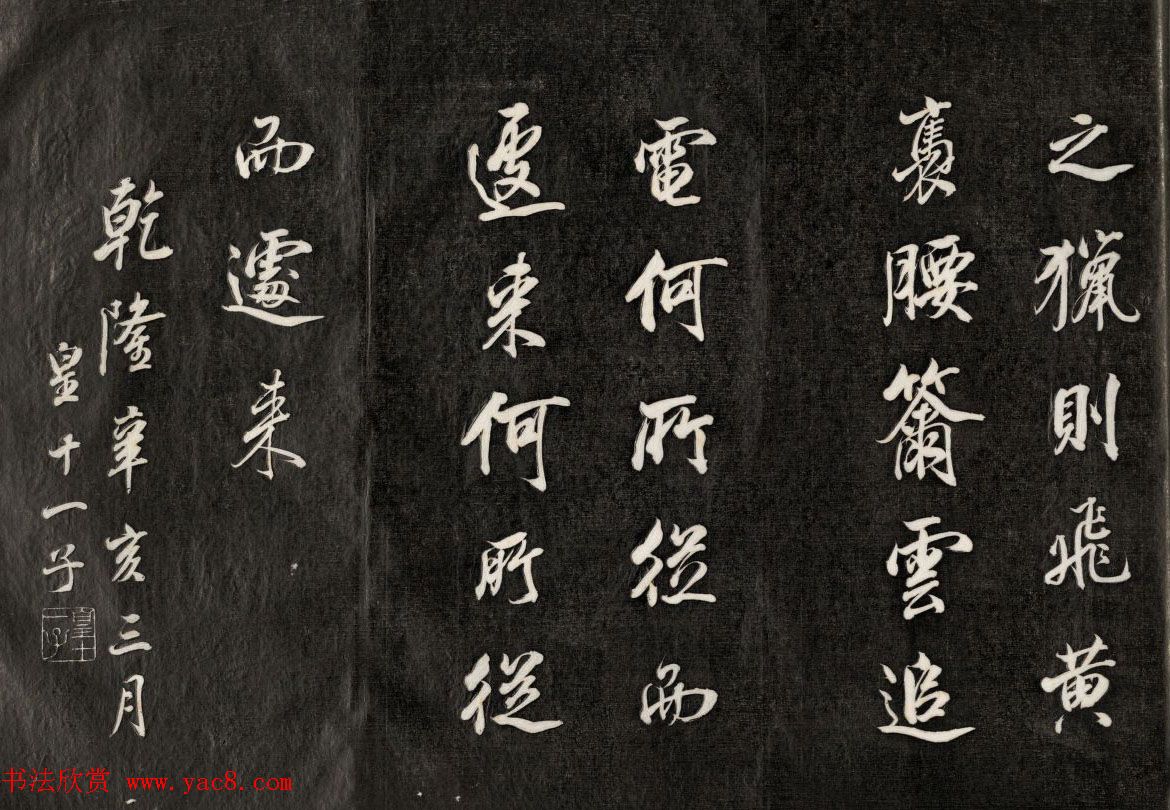 之獵則飛黃
褭腰籋雲追
電何所從而
遽来何所從
而遽来
乾隆辛亥三月
皇十一子
皇十一子
书法欣赏 www.yac8.com